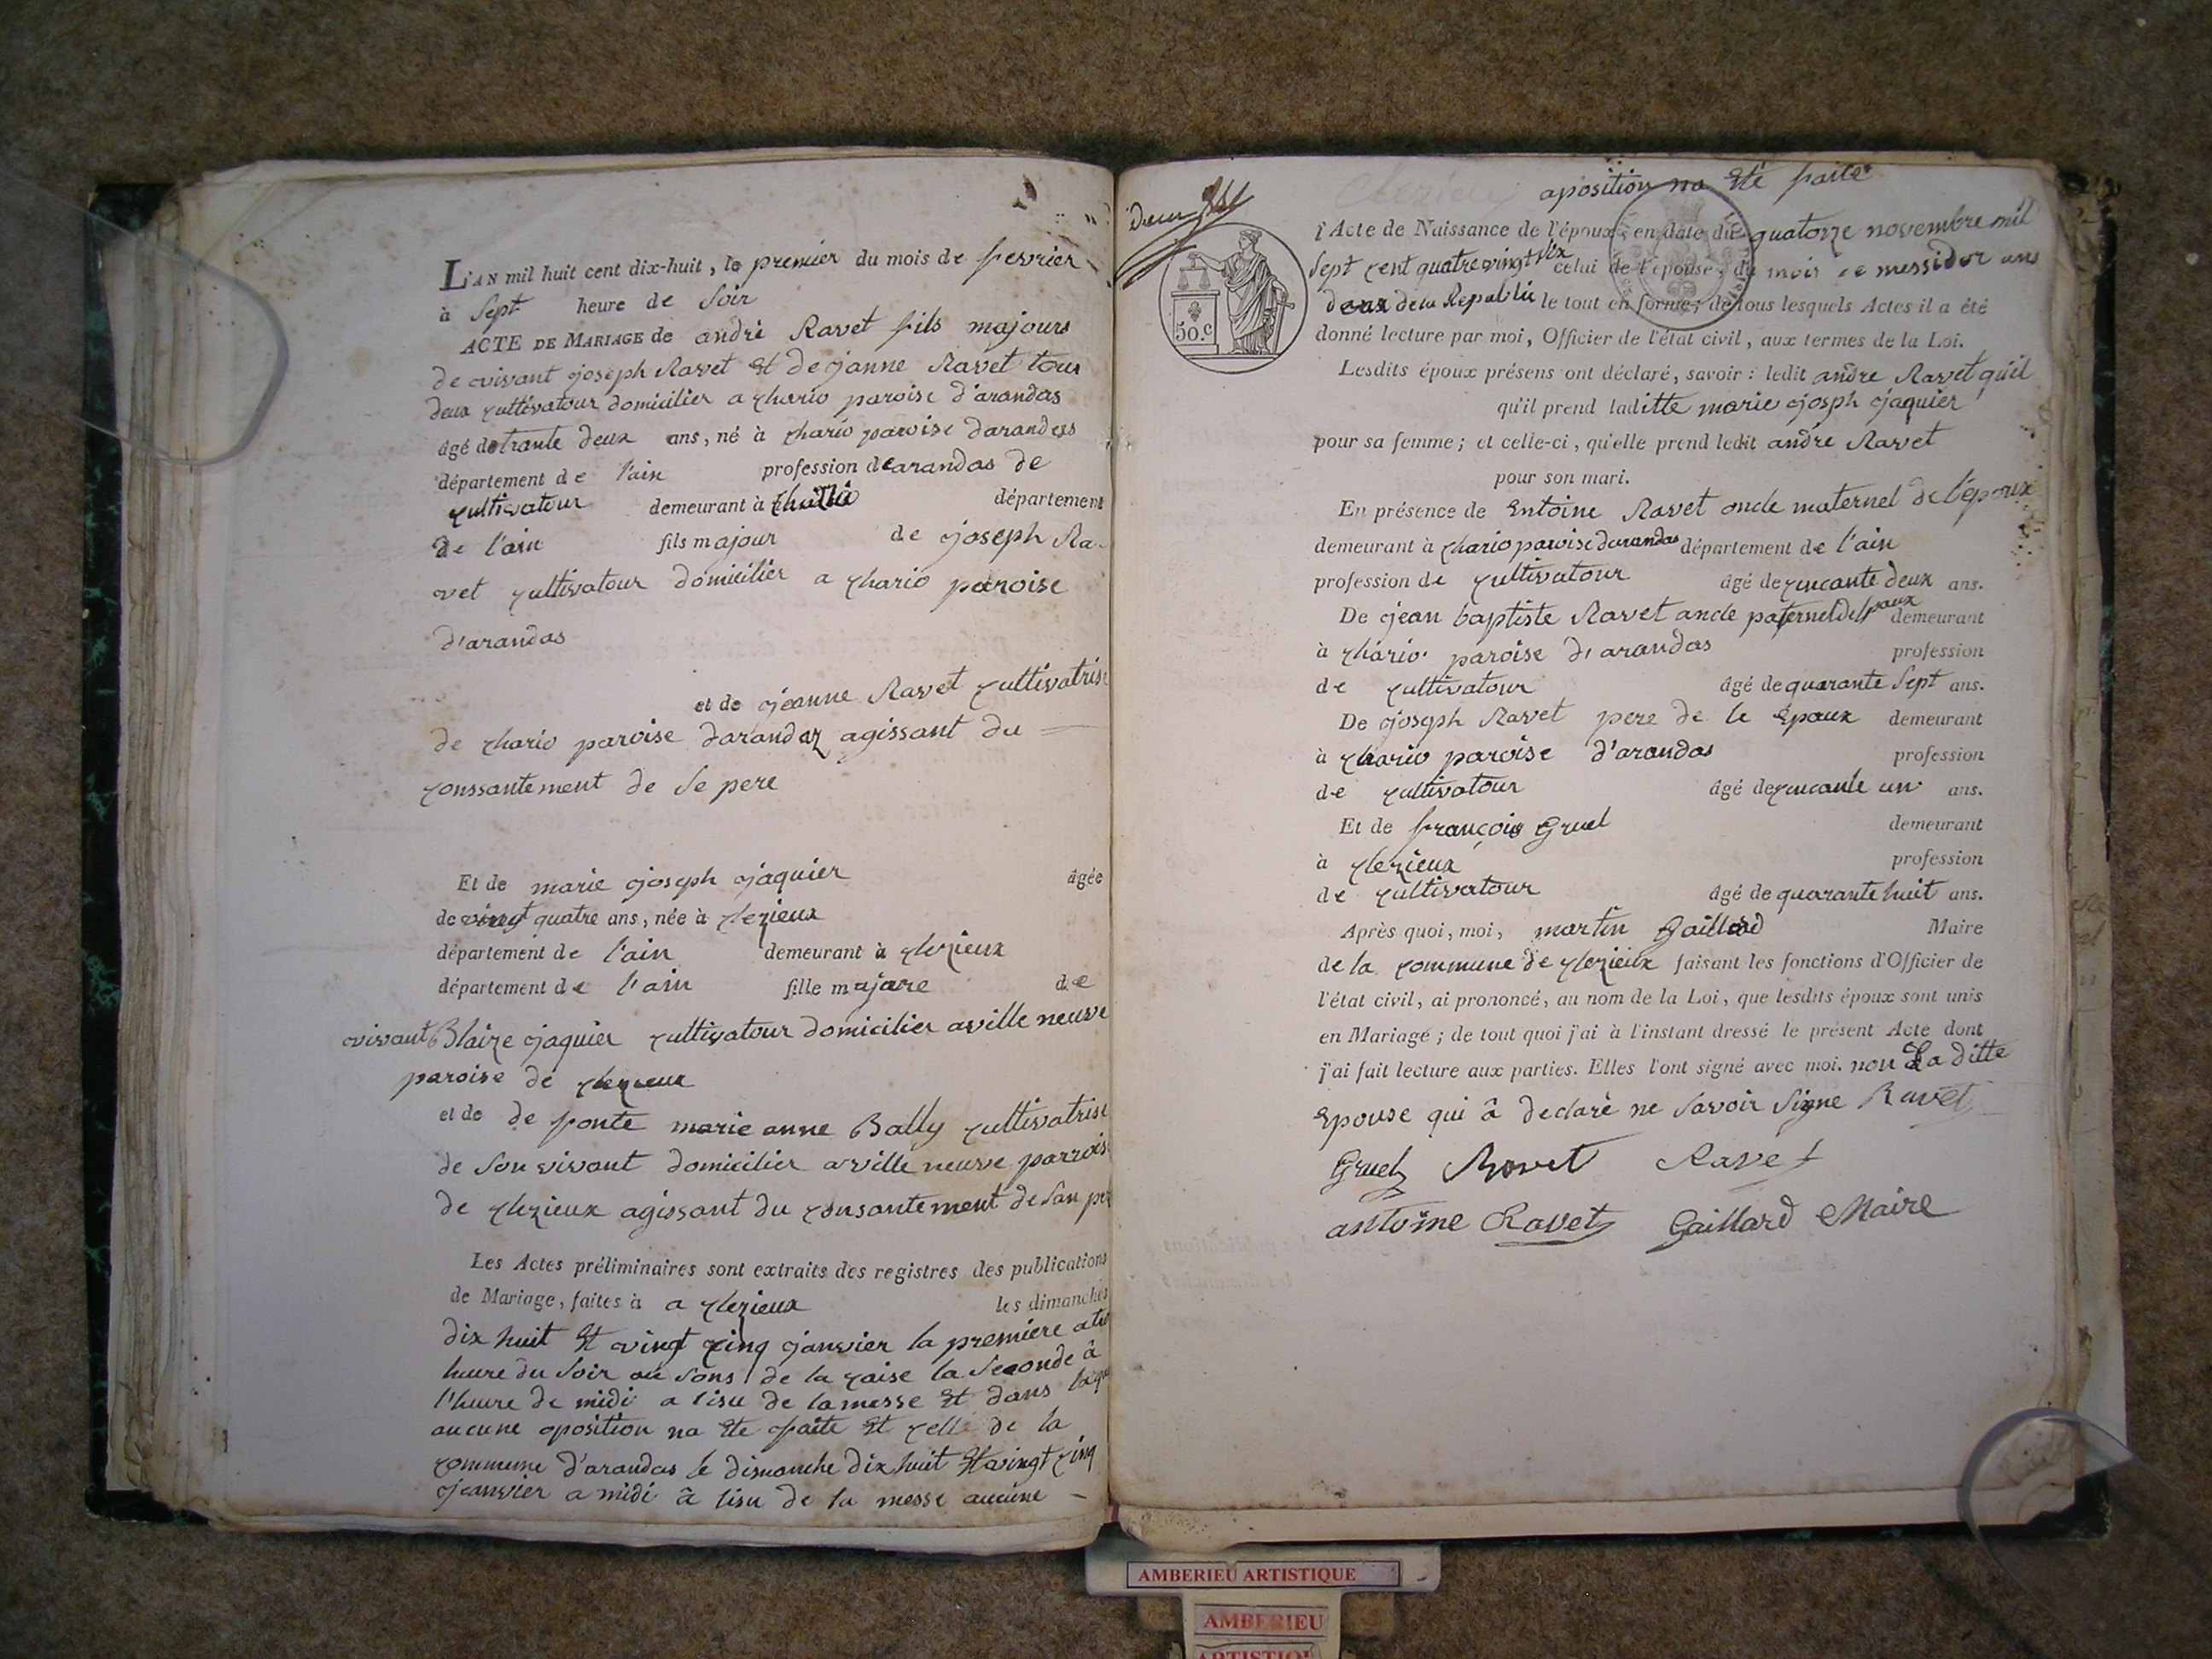 L'AN mil huit cent dix-huit, le premier du mois de fevrier
à Sept heure de Soir
ACTE DE MARIAGE de andré Ravet fils majours
de vivant joseph Ravet Et de janne Ravet tous
deux cultivatour domicilier a chario paroise d'arandas
âgé de trante deux ans, né à chario paroise darandas
département de l'ain profession de arandas de
cultivatour demeurant à département
de l'ain fils majour de joseph Ra-
vet cultivatour domicilier a chario paroise
d'arandas
et de jeanne Ravet cultivatrise
de chario paroise darandaz agissant du
conssantement de Se pere
Et de marie joseph jaquier âgée
de vingt quatre ans, née à clezieux
département de l'ain demeurant à clezieux
département de l'ain fille majare de
vivant Blaize jaquier cultivatour domicilier aville neuve
paroise de clezieux
et de de fonte marie anne Bally cultivatrise
de Son vivant domicilier aville neuve parrois
de clezieux agissant du consantement de San per
Les Actes préliminaires sont extraits des registres des publications
de Mariage, faites à a clezieux les dimanches
dix huit Et vingt cinq janvier la premiere
heure du Soir au Sons de la caise la Seconde â
l'heure de midi a lisu de la messe Et dans
aucune oposition na Ete faite Et celle de la
commune d'arandas le dimanche dix huit Et vingt cinq
janvier a midi â lisu de la messe aucune
Deux
aposition na Eté faite
50.c
l'Acte de Naissance de l'époux, en date du quatorze novembre mil
Sept cent quatrevingt Six celui de l'épouse, du mois de messidor ans
deux de la Republic le tout en forme; de tous lesquels Actes il a été
donné lecture par moi, Officier de l'état civil, aux termes de la Loi.
Lesdits époux présens ont déclaré, savoir : ledit andre Ravet quil
qu'il prend laditte marie josph jaquier
pour sa femme; et celle-ci, qu'elle prend ledit andré Ravet
pour son mari.
En présence de Entoine Ravet oncle maternel de l'époux
demeurant à chario paroise darandas département de l'ain
profession de cultivatour âgé de cincante deux ans.
De jean baptiste Ravet oncle paternel de lpoux demeurant
à chario paroise d'arandas profession
de cultivatour âgé de quarante Sept ans.
De joseph Ravet pere de le Epoux demeurant
à chario paroise d'arandas profession
de cultivatour âgé de cincante un ans.
Et de françois Gruel demeurant
à clezieux profession
de cultivatour âgé de quarante huit ans.
Après quoi, moi, martin Gaillard Maire
de la commune de clezieux faisant les fonctions d'Officier de
l'état civil, ai prononcé, au nom de la Loi, que lesdits époux sont unis
en Mariage; de tout quoi j'ai à l'instant dressé le présent Acte dont
j'ai fait lecture aux parties. Elles l'ont signé avec moi. non La ditte
Epouse qui â declaré ne Savoir Signe Ravet
Gruel Ravet Ravet
antoine Ravet Gaillard Maire
AMBERIEU ARTISTIQUE
AMBERIEU
ARTISTIQUE